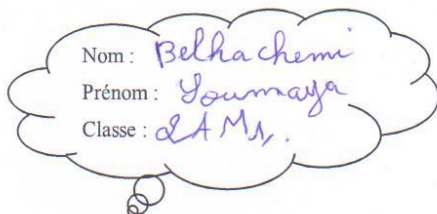 Nom : Belhachemi
Prénom : Soumaya
Classe : 2AM1.